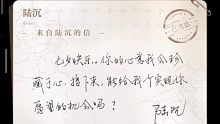 陆沉
来自陆沉的信
七夕快乐。你的心意我会珍
藏于心，接下来，能给我个实现你
愿望的机会吗？
陆沉